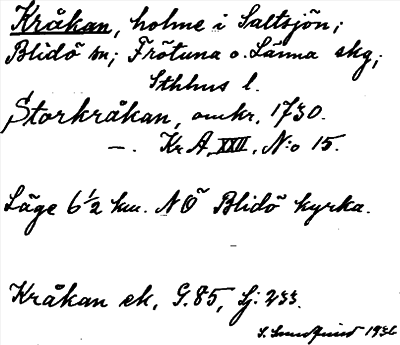 Kråkan, holme i Saltsjön;
Blidö sn; Frötuna o. Länna skg;
Sthlms l.
Storkråkan, omkr. 1730.
—. Kr A, XXII, N:o 15.
Läge 6½ km. NÖ Blidö kyrka.
Kråkan ek. G. 85, Lj: 233.
S. 1936